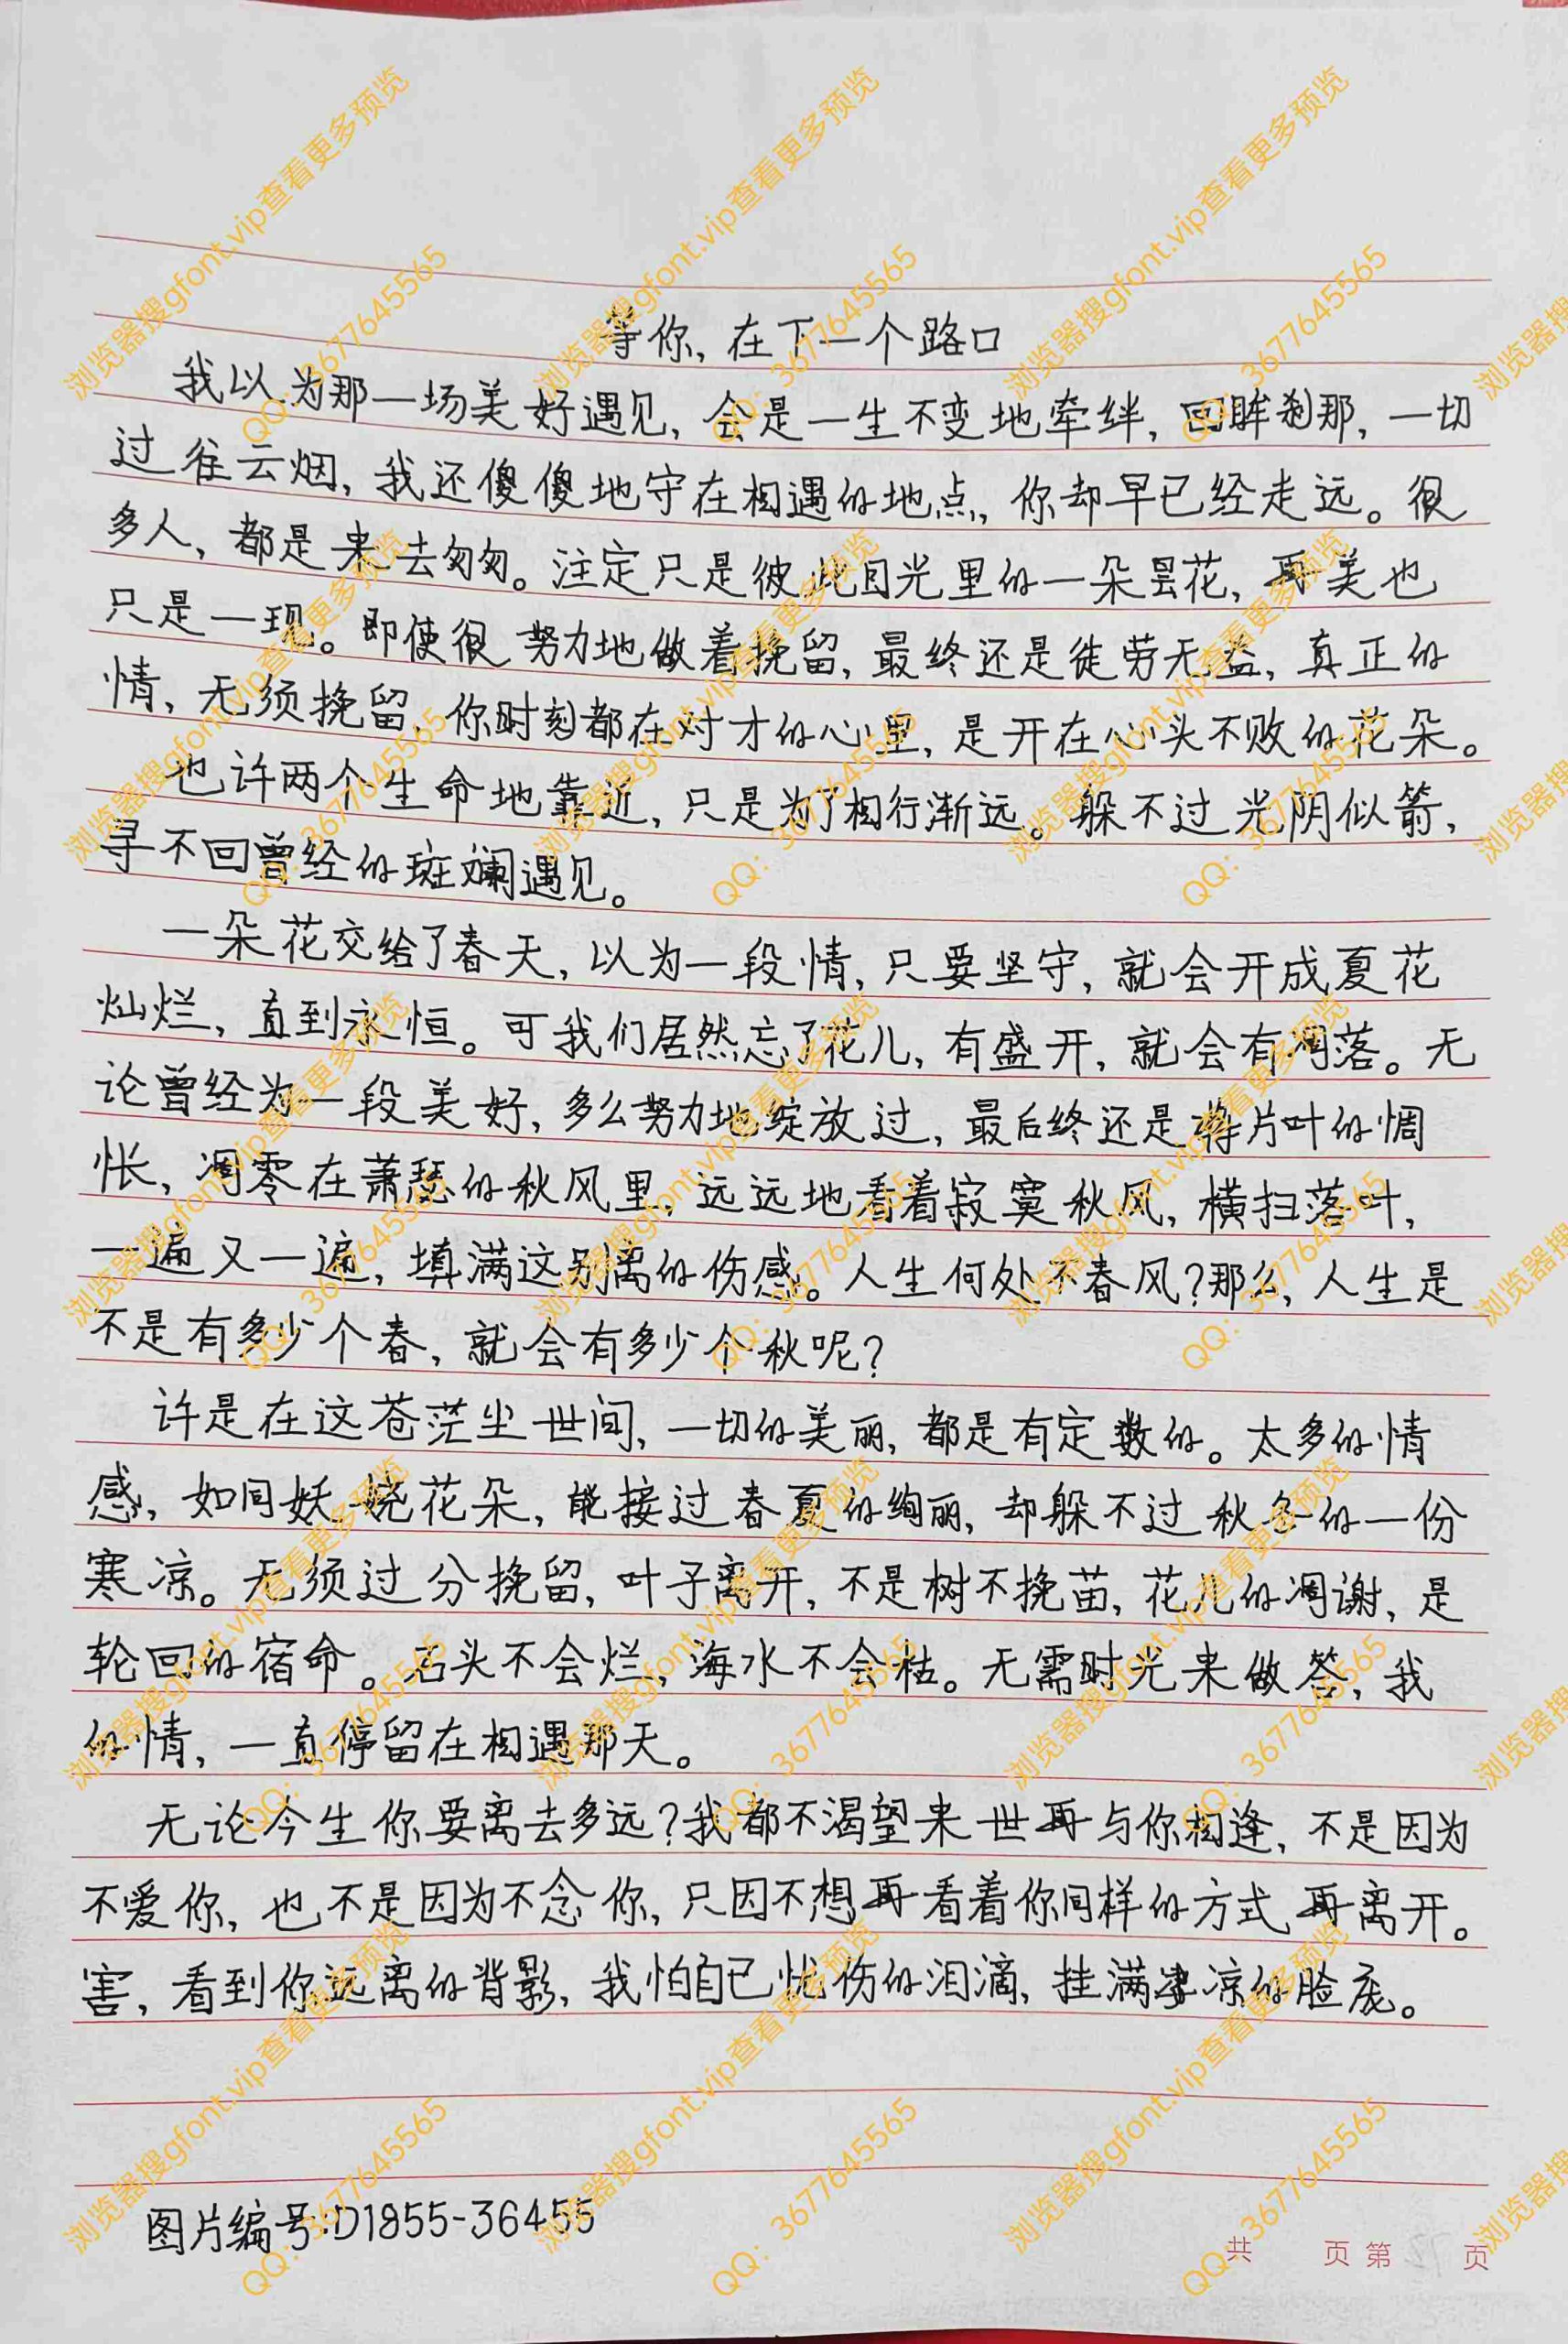 等你,在下一个路口
我以为那一场美好遇见,会是一生不变地牵绊,回眸刹那,一切
过往云烟,我还傻傻地守在相遇的地点,你却早已经走远。很
多人,都是来去匆匆。注定只是彼此目光里的一朵昙花,再美也
只是一现。即使很努力地做着挽留,最终还是徒劳无益,真正的
情,无须挽留,你时刻都在对才的心里,是开在心头不败的花朵。
也许两个生命地靠近,只是为了相行渐远。躲不过光阴似箭,
寻不回曾经的斑斓遇见。
一朵花交给了春天,以为一段情,只要坚守,就会开成夏花
灿烂,直到永恒。可我们居然忘了花儿,有盛开,就会有凋落。无
论曾经为一段美好,多么努力地绽放过,最后终还是将片叶的惆
怅,凋零在萧瑟的秋风里,远远地看着寂寞秋风,横扫落叶,
一遍又一遍,填满这别离的伤感。人生何处不春风?那么,人生是
不是有多少个春,就会有多少个秋呢?
许是在这苍茫尘世间,一切的美丽,都是有定数的。太多的情
感,如同妖娆花朵,能接过春夏的绚丽,却躲不过秋冬的一份
寒凉。无须过分挽留,叶子离开,不是树不挽苗,花儿的凋谢,是
轮回的宿命。石头不会烂,海水不会枯。无需时光来做答,我
的情,一直停留在相遇那天。
无论今生你要离去多远?我都不渴望来世再与你相逢,不是因为
不爱你,也不是因为不念你,只因不想再看着你同样的方式再离开。
害,看到你远离的背影,我怕自己忧伤的泪滴,挂满凄凉的脸庞。
图片编号:D1955-36455
共 页 第 页
浏览器搜gfont.vip查看更多预览
QQ: 3677645565